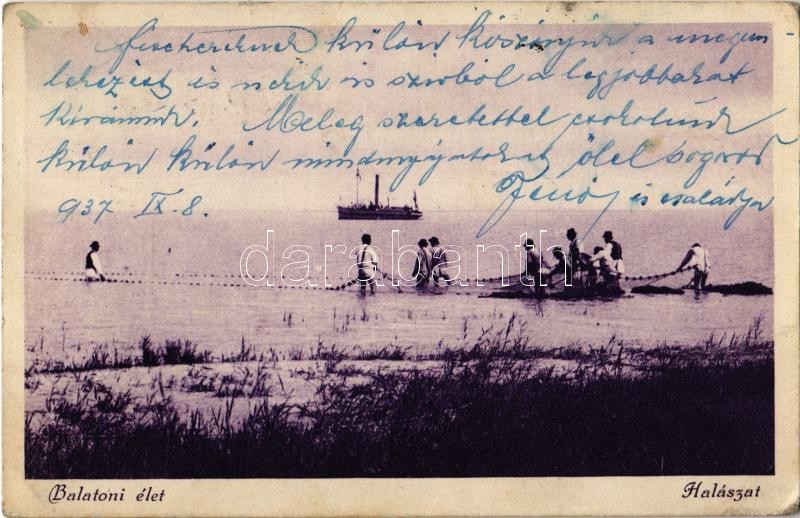 Fischeréknek külön köszönjük a megem
lékezést és nekik is szivből a legjobbakat
kivánunk. Meleg szeretettel csokolunk
külön külön mindnyájatokat ölel sogorod
Jenő és családja
937 IX. 8.
darabanth
Balatoni élet
Halászat